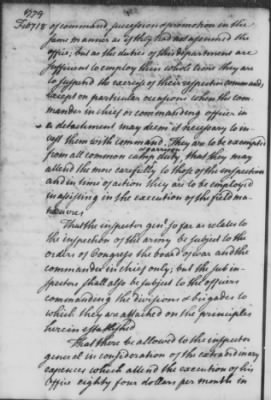 1779
Feb 18 of command, succession & promotion in the
same manner as if they had not assumed the
office, but as the duties of this department are
sufficient to employ their whole time they are
to suspend the exercise of their respective commands,
except on particular occasions when the com-
mander in chief or commanding officer in
a detachment may deem it necessary to in-
vest them with command. They are to be exempted
from all common camp & garrison duty, that they may
attend the more carefully to those of the inspection
and in time of action they are to be employed
in assisting in the execution of the field ma-
nœuvres.
That the inspector genl. so far as relates to
the inspection of the army be subject to the
orders of Congress the board of war and the
commander in chief only; but the sub in-
spectors shall also be subject to the officers
commanding the divisions & brigades to
which they are attached on the principles
herein established
That there be allowed to the inspector
general in consideration of the extraordinary
expences which attend the execution of his
office eighty four dollars per month in